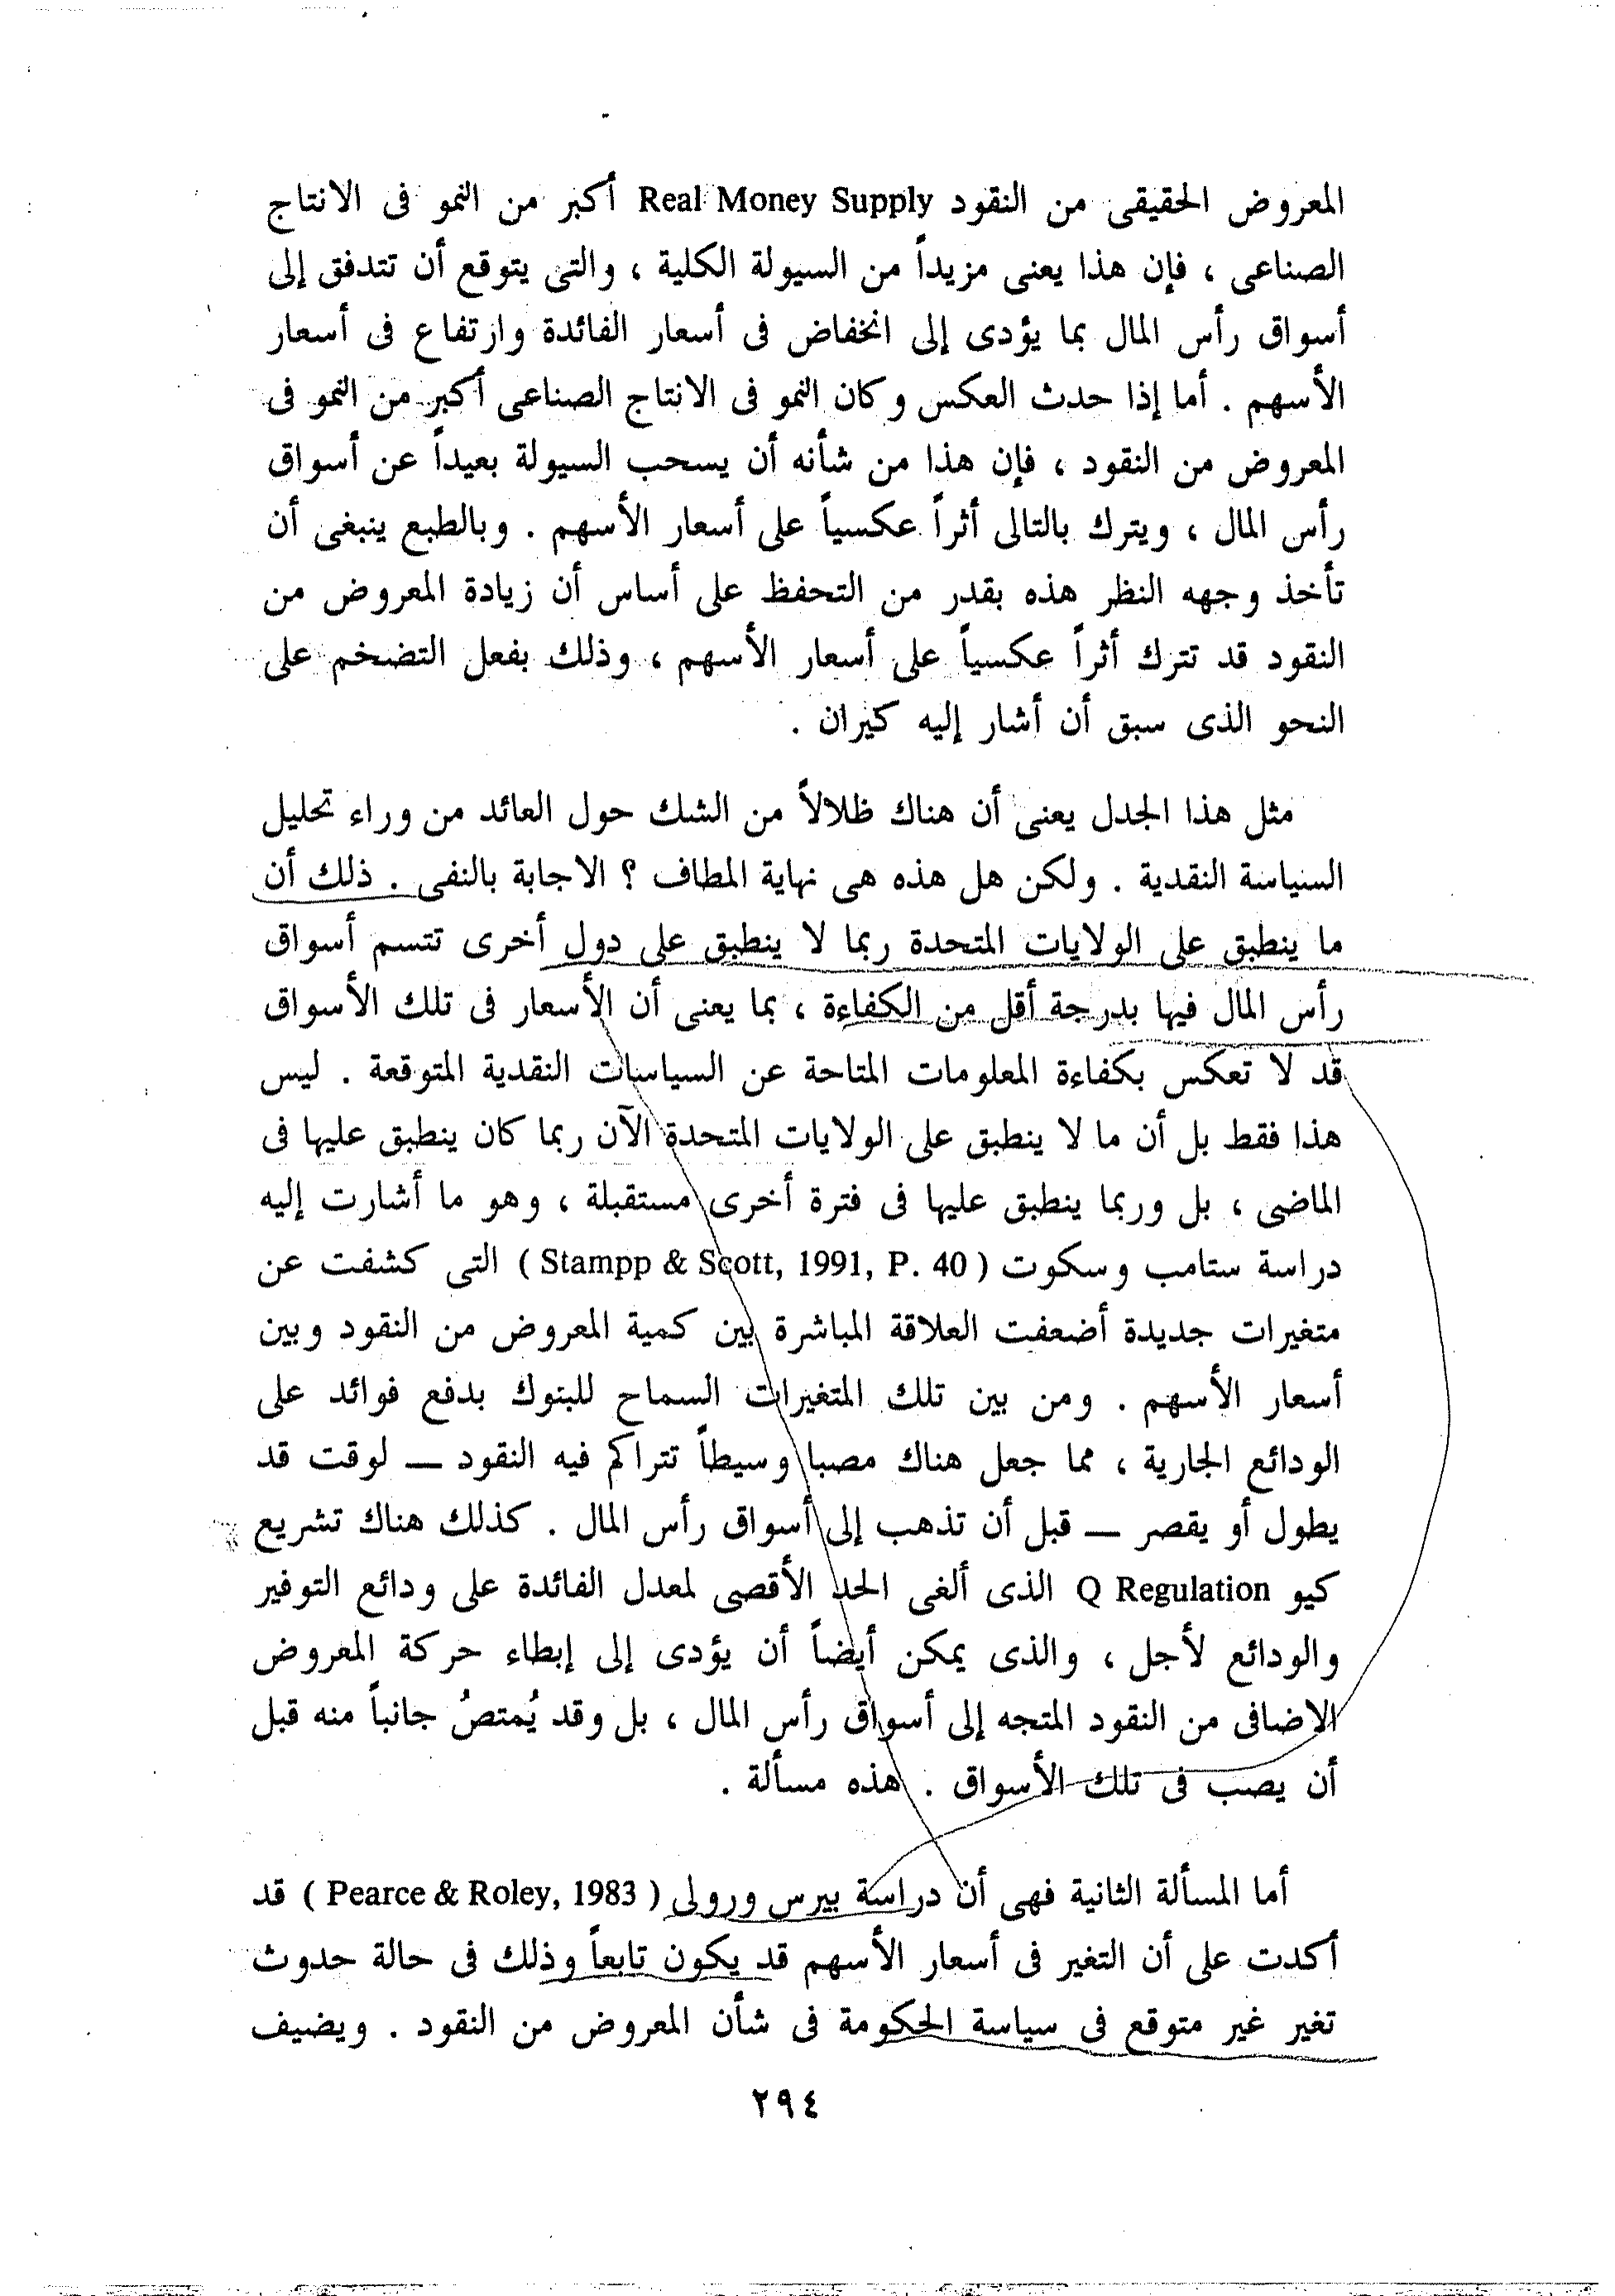 المعروض الحقيقى من النقود Real Money Supply أكبر من النمو فى الانتاج
الصناعى ، فإن هذا يعنى مزيداً من السيولة الكلية ، والتى يتوقع أن تتدفق إلى
أسواق رأس المال بما يؤدى إلى انخفاض فى أسعار الفائدة وارتفاع فى أسعار
الأسهم . أما إذا حدث العكس وكان النمو فى الانتاج الصناعى أكبر من النمو فى
المعروض من النقود ، فإن هذا من شأنه أن يسحب السيولة بعيداً عن أسواق
رأس المال ، ويترك بالتالى أثراً عكسياً على أسعار الأسهم . وبالطبع ينبغى أن
تأخذ وجهه النظر هذه بقدر من التحفظ على أساس أن زيادة المعروض من
النقود قد تترك أثراً عكسياً على أسعار الأسهم ، وذلك بفعل التضخم على
النحو الذى سبق أن أشار إليه كيران .
مثل هذا الجدل يعنى أن هناك ظلالاً من الشك حول العائد من وراء تحليل
السياسة النقدية . ولكن هل هذه هى نهاية المطاف ؟ الاجابة بالنفى . ذلك أن
ما ينطبق على الولايات المتحدة ربما لا ينطبق على دول أخرى تتسم أسواق
رأس المال فيها بدرجة أقل من الكفاءة ، بما يعنى أن الأسعار فى تلك الأسواق
قد لا تعكس بكفاءة المعلومات المتاحة عن السياسات النقدية المتوقعة . ليس
هذا فقط بل أن ما لا ينطبق على الولايات المتحدة الآن ربما كان ينطبق عليها فى
الماضى ، بل وربما ينطبق عليها فى فترة أخرى مستقبلة ، وهو ما أشارت إليه
دراسة ستامب وسكوت ( Stampp & Scott, 1991, P. 40 ) التى كشفت عن
متغيرات جديدة أضعفت العلاقة المباشرة بين كمية المعروض من النقود وبين
أسعار الأسهم . ومن بين تلك المتغيرات السماح للبنوك بدفع فوائد على
الودائع الجارية ، مما جعل هناك مصبا وسيطاً تتراكم فيه النقود ــ لوقت قد
يطول أو يقصر ــ قبل أن تذهب إلى أسواق رأس المال . كذلك هناك تشريع
كيو Q Regulation الذى ألغى الحد الأقصى لمعدل الفائدة على ودائع التوفير
والودائع لأجل ، والذى يمكن أيضاً أن يؤدى إلى إبطاء حركة المعروض
الاضافى من النقود المتجه إلى أسواق رأس المال ، بل وقد يُمتصُ جانباً منه قبل
أن يصب فى تلك الأسواق . هذه مسألة .
أما المسألة الثانية فهى أن دراسة بيرس ورولى ( Pearce & Roley, 1983 ) قد
أكدت على أن التغير فى أسعار الأسهم قد يكون تابعاً وذلك فى حالة حدوث
تغير غير متوقع فى سياسة الحكومة فى شأن المعروض من النقود . ويضيف
٢٩٤